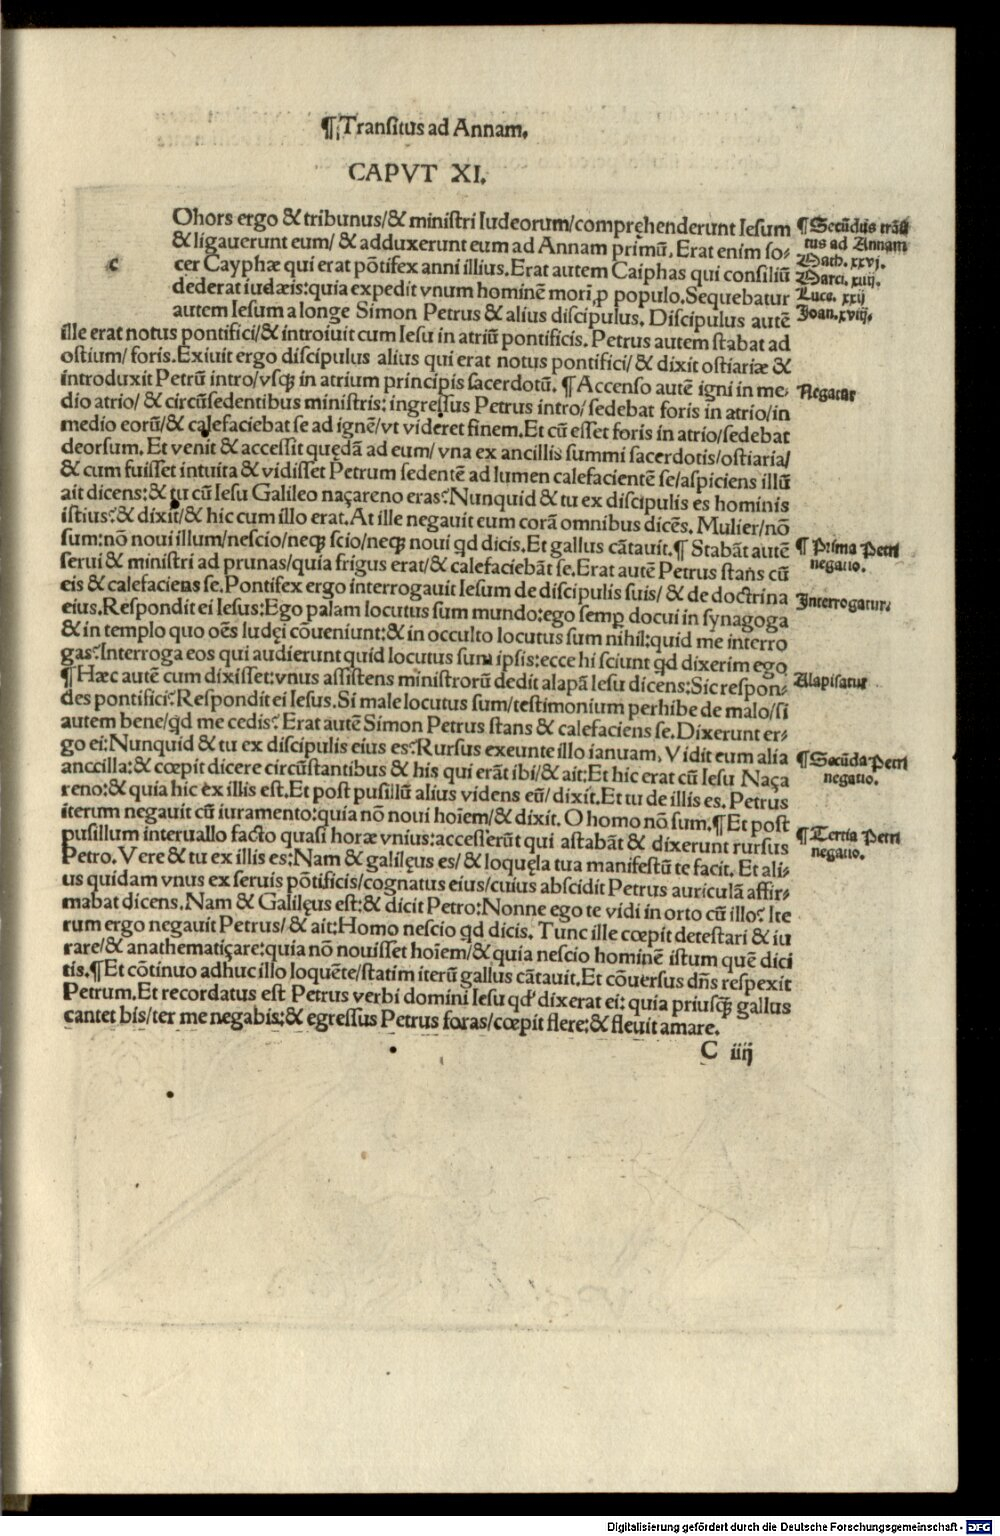 ¶¡Tranſitus ad Annam.
CAPVT XI.
c
Ohors ergo & tribunus/& miniſtri Iudeorum/compręhenderunt Ieſum
& ligauerunt eum/ & adduxerunt eum ad Annam primū. Erat enim ſo⸗
cer Cayphæ qui erat pōtifex anni illius. Erat autem Caiphas qui conſiliū
dederat iudæis: quia expedit vnum hominē mori ꝓ populo. Sequebatur
autem Ieſum a longe Simon Petrus & alius diſcipulus. Diſcipulus autē
ille erat notus pontifici/& introiuit cum Ieſu in atriū pontificis. Petrus autem ſtabat ad
oſtium/ foris. Exiuit ergo diſcipulus alius qui erat notus pontifici/ & dixit oſtiariæ &
introduxit Petrū intro/vſqꝫ in atrium principis ſacerdotū. ¶ Accenſo autē igni in me⸗
dio atrio/ & circūſedentibus miniſtris: ingreſſus Petrus intro/ ſedebat foris in atrio/in
medio eorū/& calefaciebat ſe ad ignē/vt videret finem. Et cū eſſet foris in atrio/ſedebat
deorſum. Et venit & acceſſit quędā ad eum/ vna ex ancillis ſummi ſacerdotis/oſtiaria/
& cum fuiſſet intuita & vidiſſet Petrum ſedentē ad lumen calefacientē ſe/aſpiciens illū
ait dicens: & tu cū Ieſu Galileo naçareno eras? Nunquid & tu ex diſcipulis es hominis
iſtius? & dixit/& hic cum illo erat. At ille negauit eum corā omnibus dicēs. Mulier/nō
ſum: nō noui illum/neſcio/neqꝫ ſcio/neqꝫ noui qd dicis. Et gallus cātauit. ¶ Stabāt autē
ſerui & miniſtri ad prunas/quia frigus erat/& calefaciebāt ſe. Erat autē Petrus ſtans cū
eis & calefaciens ſe. Pontifex ergo interrogauit Ieſum de diſcipulis ſuis/ & de doctrina
eius. Reſpondit ei Ieſus: Ego palam locutus ſum mundo: ego ſemꝑ docui in ſynagoga
& in templo quo oēs Iudęi cōueniunt: & in occulto locutus ſum nihil: quid me interro
gas? Interroga eos qui audierunt quid locutus ſum ipſis: ecce hi ſciunt qd dixerim ego
¶ Hæc autē cum dixiſſet: vnus aſſiſtens miniſtrorū dedit alapā Ieſu dicens: Sic reſpon⸗
des pontifici? Reſpondit ei Ieſus. Si male locutus ſum/teſtimonium perhibe de malo/ſi
autem bene/qd me cedis? Erat autē Simon Petrus ſtans & calefaciens ſe. Dixerunt er⸗
go ei: Nunquid & tu ex diſcipulis eius es? Rurſus exeunte illo ianuam. Vidit eum alia
anccilla: & cœpit dicere circūſtantibus & his qui erāt ibi/& ait: Et hic erat cū Ieſu Naça
reno: & quia hic ex illis eſt. Et poſt puſillū alius videns eū/ dixit. Et tu de illis es. Petrus
iterum negauit cū iuramento: quia nō noui hoīem/& dixit. O homo nō ſum. ¶ Et poſt
puſillum interuallo facto quaſi horæ vnius: acceſſerūt qui aſtabāt & dixerunt rurſus
Petro. Vere & tu ex illis es: Nam & galilęus es/ & loquęla tua manifeſtū te facit. Et ali⸗
us quidam vnus ex ſeruis pōtificis/cognatus eius/cuius abſcidit Petrus auriculā affir⸗
mabat dicens. Nam & Galilęus eſt: & dicit Petro: Nonne ego te vidi in orto cū illo? Ite
rum ergo negauit Petrus/ & ait: Homo neſcio qd dicis. Tunc ille cœpit deteſtari & iu
rare/& anathematiçare: quia nō nouiſſet hoīem/& quia neſcio hominē iſtum quē dici
tis. ¶ Et cōtinuo adhuc illo loquēte/ſtatim iterū gallus cātauit. Et cōuerſus dñs reſpexit
Petrum. Et recordatus eſt Petrus verbi domini Ieſu qd dixerat ei: quia priuſqꝫ gallus
cantet bis/ter me negabis: & egreſſus Petrus foras/cœpit flere: & fleuit amare.
C iiij
¶ Secūdus trāſi
tus ad Annam
Math. xxvj.
Marci. xiiij.
Luce. xxij
Joan. xviij.
Negatur
¶ Prima Petri
negatio.
Interrogatur.
Alapiſatur
¶ Secūda Petri
negatio.
¶ Tertia Petri
negatio.
Digitalisierung gefördert durch die Deutsche Forschungsgemeinschaft - DFG